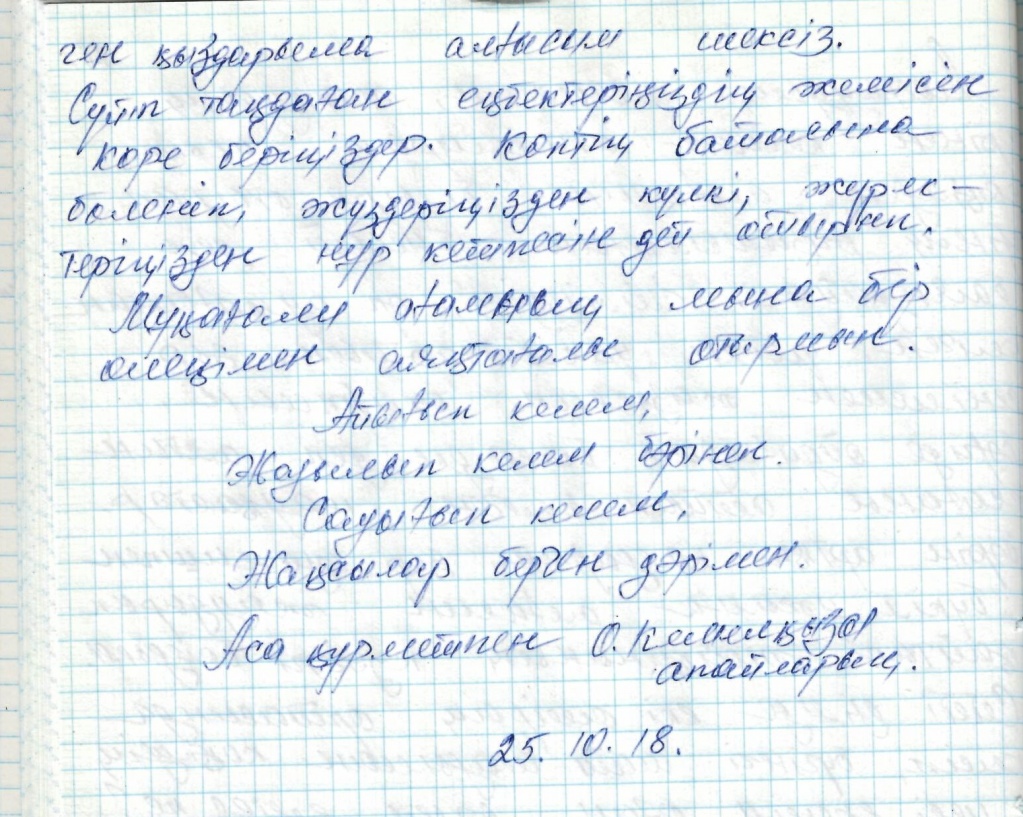 ген қыздарыма алғысым шексіз.
Сүйіп таңдаған еңбектеріңіздің жемісін
көре беріңіздер. Көптің батасына
бөленіп, жүздеріңізден күлкі, жүрек-
теріңізден нұр кетпесін деп отырмын.
Мұқағали атамыздың мына бір
өлеңімен аяқтағалы отырмын.
Айығып келем,
Жазылып келем бәрінен.
Сауығып келем,
Жақсылар берген дәрімен.
Аса құрметпен О. Кемелқызы
апайларың.
25. 10. 18.